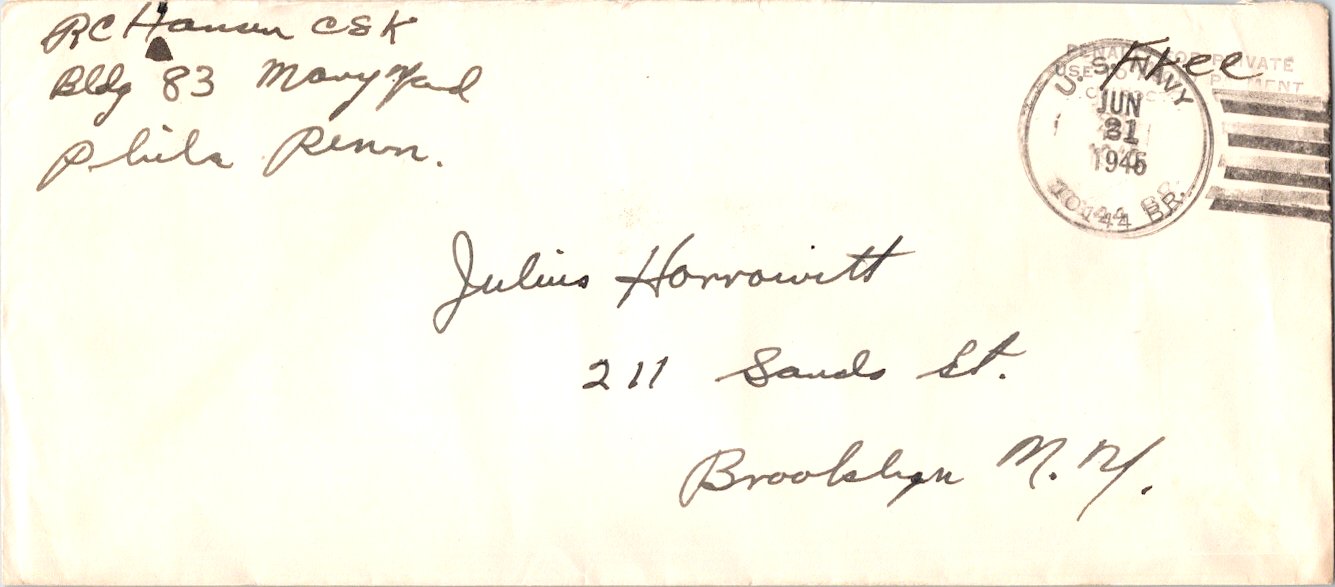 RC Hansen CSK
Bldg 83 Navy Yard
Phila Penn.
Free
PENALTY FOR PRIVATE
USE TO PAYMENT
U.S. NAVY
JUN
21
1945
10144 BR.
Julius Horrowitt
211 Sands St.
Brooklyn N. Y.